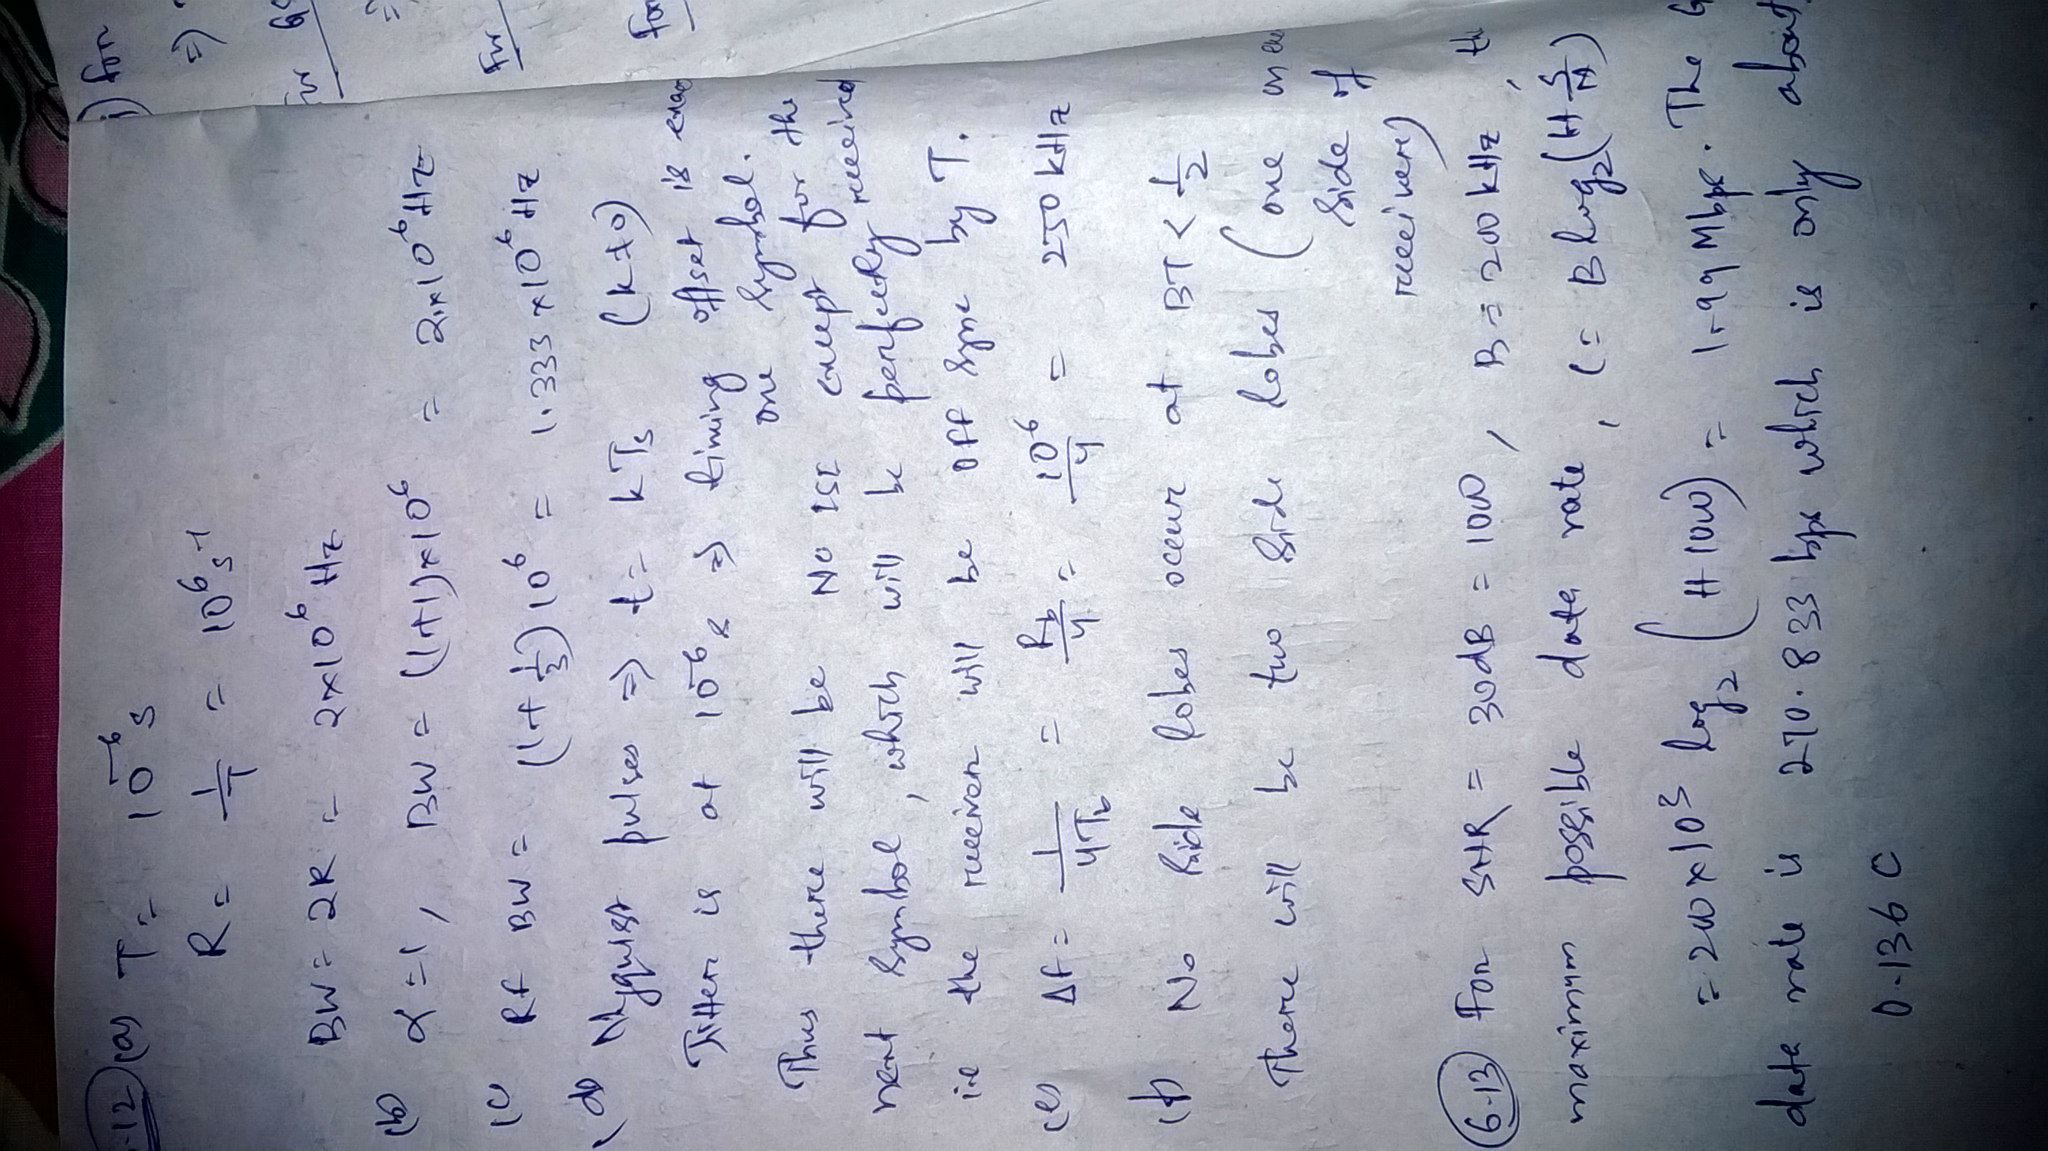 6.12 (a) T = 10^-6 s
R = 1/T = 10^6 s^-1
BW = 2R = 2×10^6 Hz
(b) α = 1, BW = (1+1)×10^6 = 2×10^6 Hz
(c) RF BW = (1+1/3)10^6 = 1.333×10^6 Hz
(d) Nyquist pulses ⇒ t = kTs (k≠0)
Jitter is at 10^-6 s ⇒ timing offset is
one symbol.
Thus there will be No ISI except for the
next symbol, which will be perfectly received
ie the receiver will be off sync by T.
(e) Δf = 1/4Tb = Rb/4 = 10^6/4 = 250 kHz
(f) No side lobes occur at BT < 1/2
There will be two side lobes (one on
side of
receiver)
6.13 For SNR = 30dB = 1000, B = 200 kHz, the
maximum possible data rate, C = B log2(1+S/N)
= 200×10^3 log2(1+1000) = 1.99 Mbps. The
data rate is 270.833 kbps which is only about
0.136 C
i) For
⇒
For
=
For
For